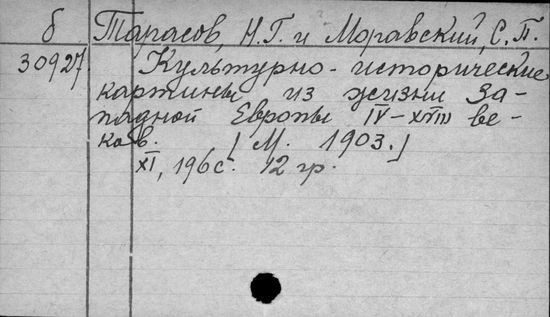 б Тарасов, Н.Г. и Моравский, С.П.
30927 Культурно-исторические
картины из жизни За-
падной Европы IV-XVIII ве-
ков. [М. 1903.]
XI, 196 с. 12 гр.